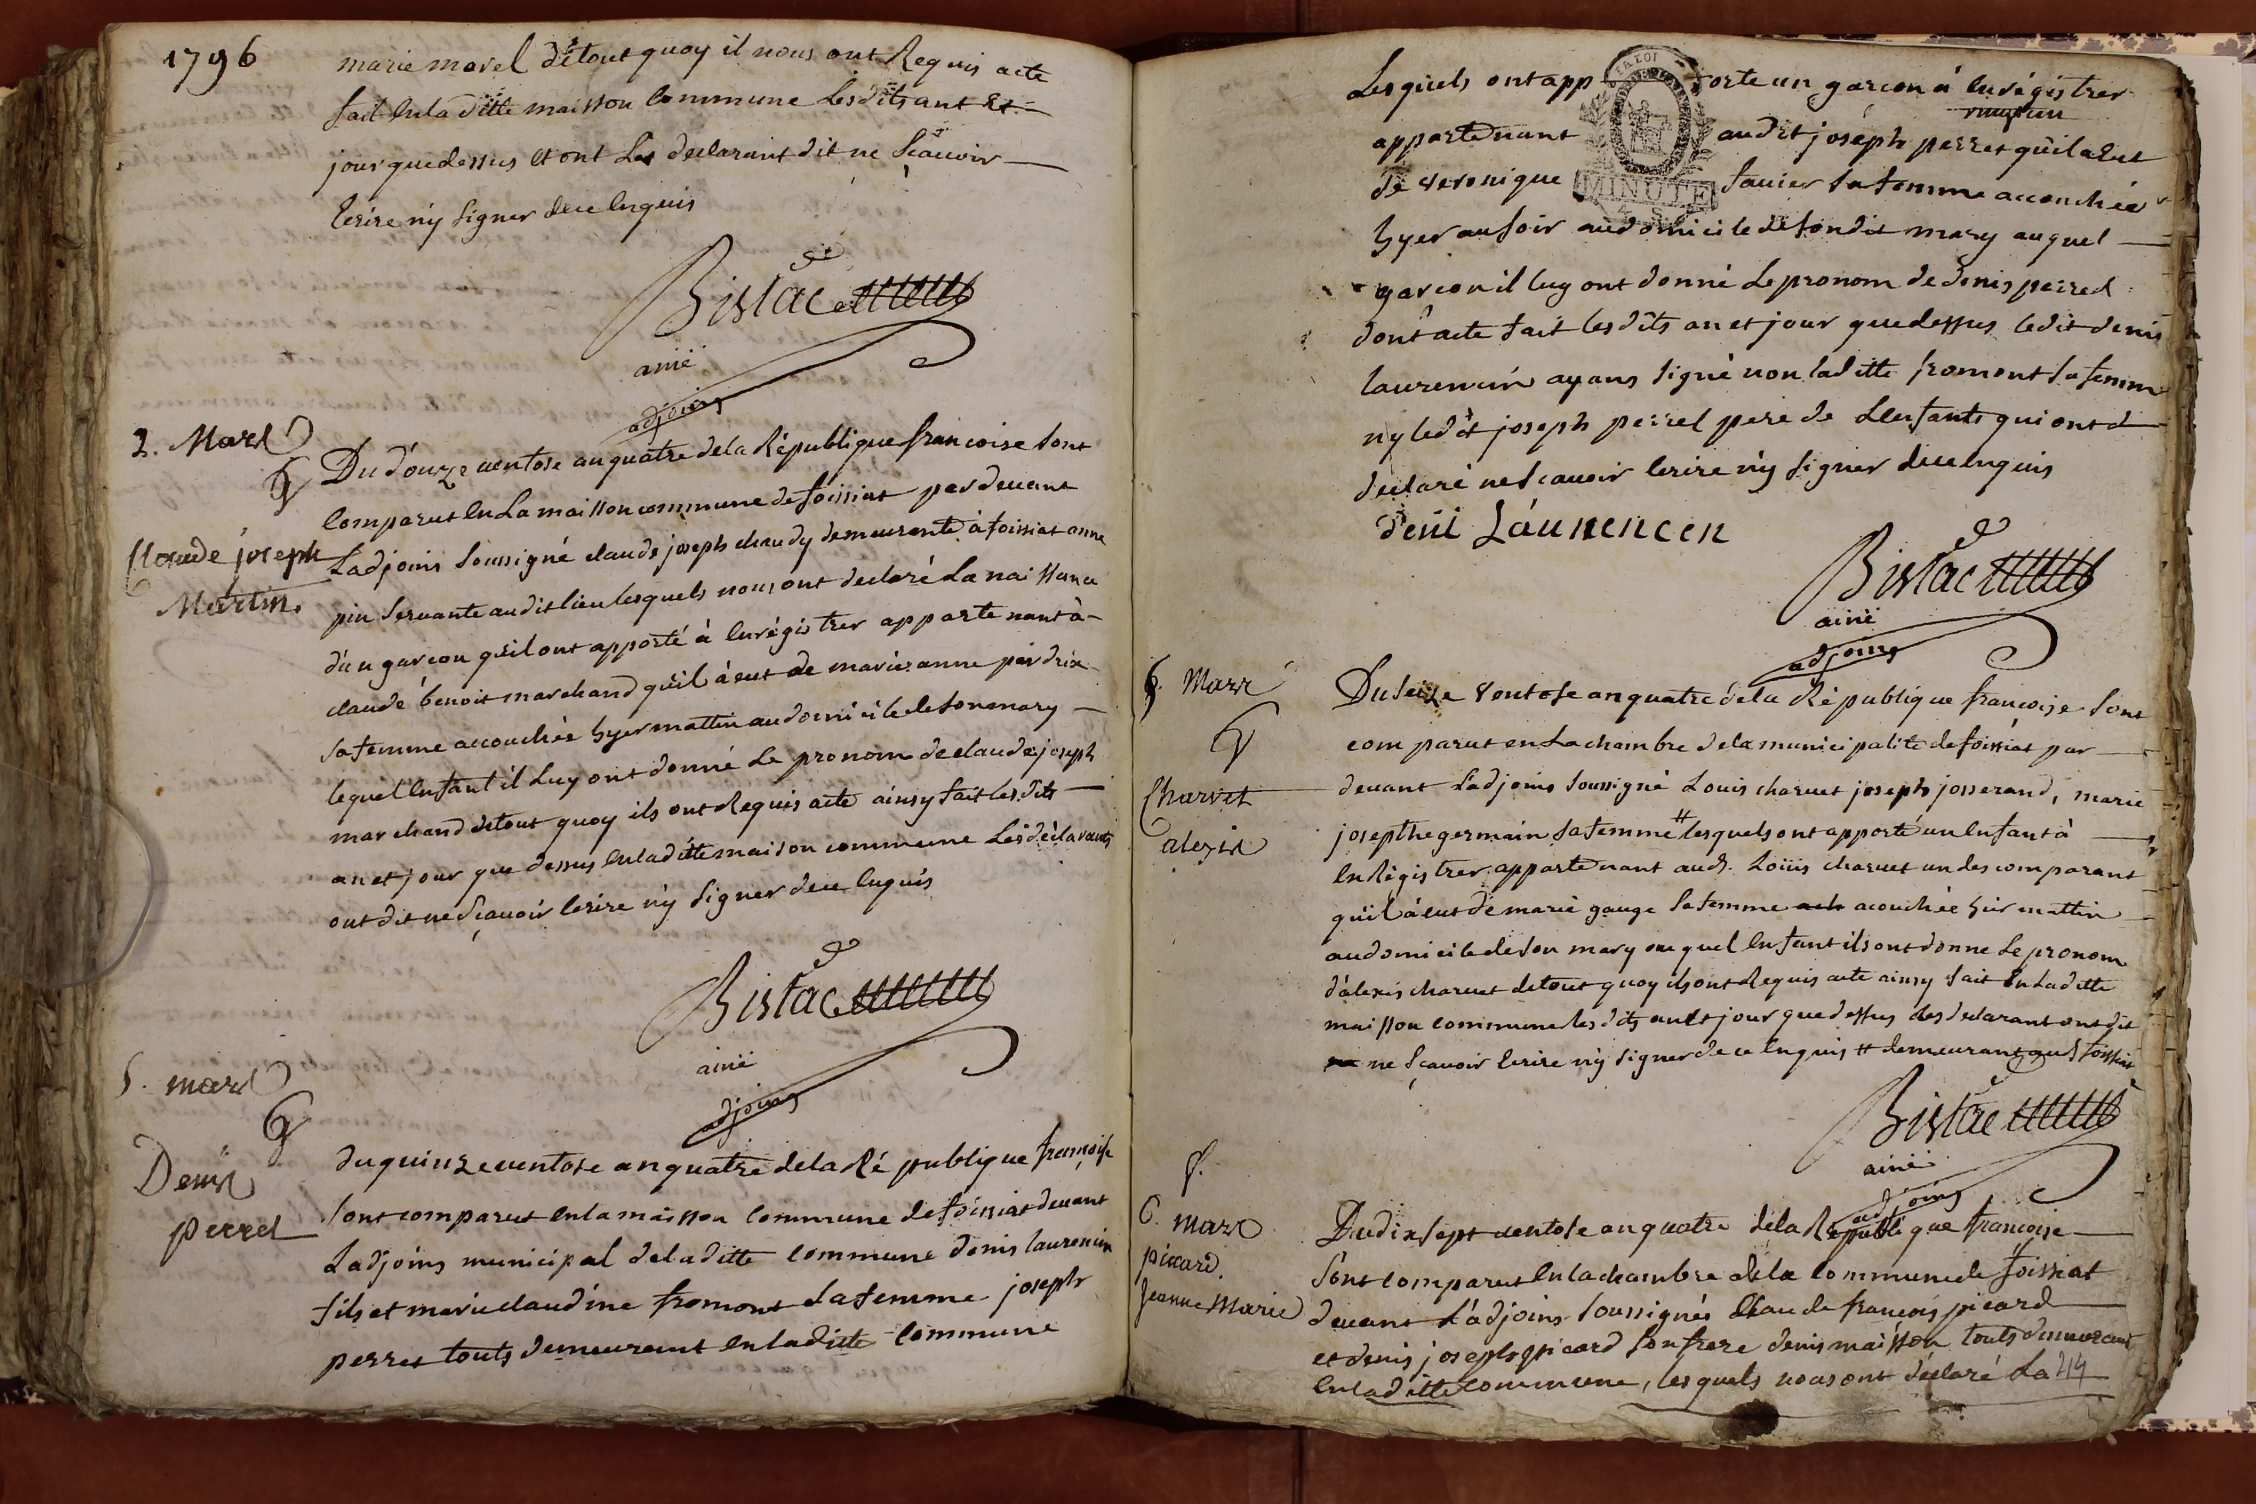 1796
marie morel de tout quoy il nous ont Requis acte
fait en la ditte maisson Commune Les dits ant et
jour que dessus et ont Les declarant dit ne Scavoir
Ecrire n'y signer de ce Enquis
Bistac
ainé
adjoins
2. Mars
Claude joseph
Du douze ventose an quatre de la République francoise sont
Comparut En La maisson commune de foissiat par devant
Ladjoins soussigné claude joseph chaudy demeurente à foissiat anne
pin servante audit lieu lesquels nous ont declaré La naissance
d'un garcon qu'il ont apporté à Enrégistrer appartenant à
claude benoit marchand qu'il à eut de marie anne perdrix
sa femme accouchée hyer mattin au domicile de son mary
lequel Enfant il Luy ont donné Le pronom de claude joseph
marchand de tout quoy ils ont Requis acte ainsy fait les dits
an et jour que dessus En la ditte maison commune Les déclarants
ont dit ne Sçavoir Ecrire n'y signer de ce Enquis
Bistac
ainé
adjoins
5. mars
Denis
perret
du quinze ventose an quatre de la République françoise
sont comparut En la maisson Commune de foissiat devant
Ladjoins municipal de la ditte Commune denis laurencin
fils et marie claudine fromont sa femme joseph
perret touts demeurant En la ditte Commune
LA LOI
MINUTE
Les quels ont app orte un garcon à Enrégistrer
appartenant audit joseph perret qu'il a Eut
de veronique favier sa femme accouchée
hyer au soir au domicile de son dit mary auquel
garcon il luy ont donné Le pronom de denis perret
dont acte fait les dits an et jour que dessus ledit denis
laurencin ayans signé non laditte fromont sa femme
ny ledit joseph perret pere de L'enfants qui ont
declaré ne Scavoir Ecrire n'y signer de ce Enquis
deni Laurencen
Bistac
ainé
adjoins
6. Mars
Charvet
alexis
Du seize ventose an quatre de la République françoise sont
comparut en La chambre de la municipalité de foissiat par
devant L'adjoins soussigné Louis charvet joseph josserand, marie
josepthe germain sa femme # lesquels ont apporté un Enfant à
EnRégistrer appartenant aud. Loüis charvet un des comparant
qu'il à eut de marie gauge sa femme acouchée hier mattin
au domicile de son mary auquel Enfant ils ont donne Le pronom
d'alexis charvet de tout quoy ils ont Requis acte ainsy fait En La ditte
maisson commune les dits an et jour que dessus les declarant ont dit
ne Sçavoir Ecrire n'y signer de ce Enquis # demeurant aud foissiat
Bistac
ainé
adjoins
6. mars
picard.
Jeanne Marie
Du dix sept ventose an quatre de la République francoise
sont comparut En la chambre de la Commune de foissiat
devant L'adjoins soussignés Claude francois picard
et denis joseph picard son frere denis maisson touts demeurant
En la ditte commune, les quels nous ont déclaré La